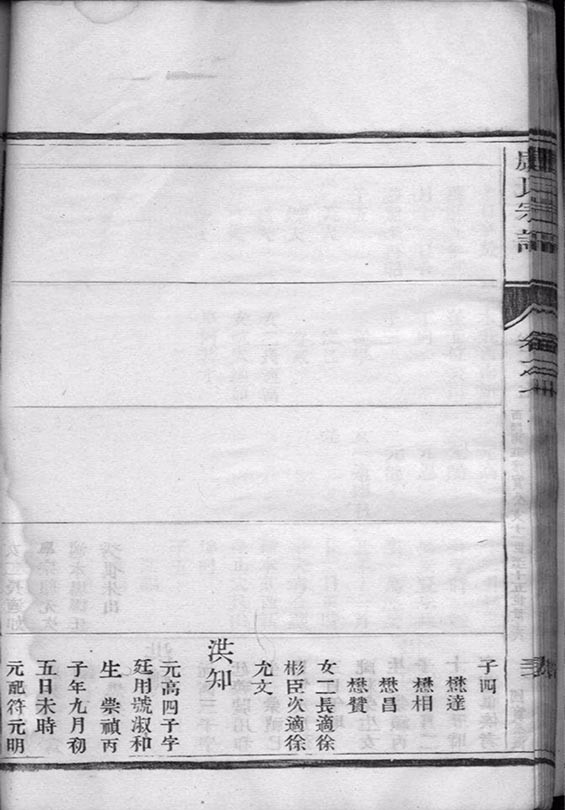 盧氏宗譜
卷之
子四
懋達
懋相
懋昌
懋贊
女二長適徐
彬臣次適徐
允文
洪知
元高四子字
廷用號淑和
生崇禎丙
子年九月初
五日未時
元配符元明